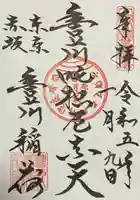 奉拝
令和五年十月九日
豊川吒枳尼真天
東京
赤坂
豊川稲荷